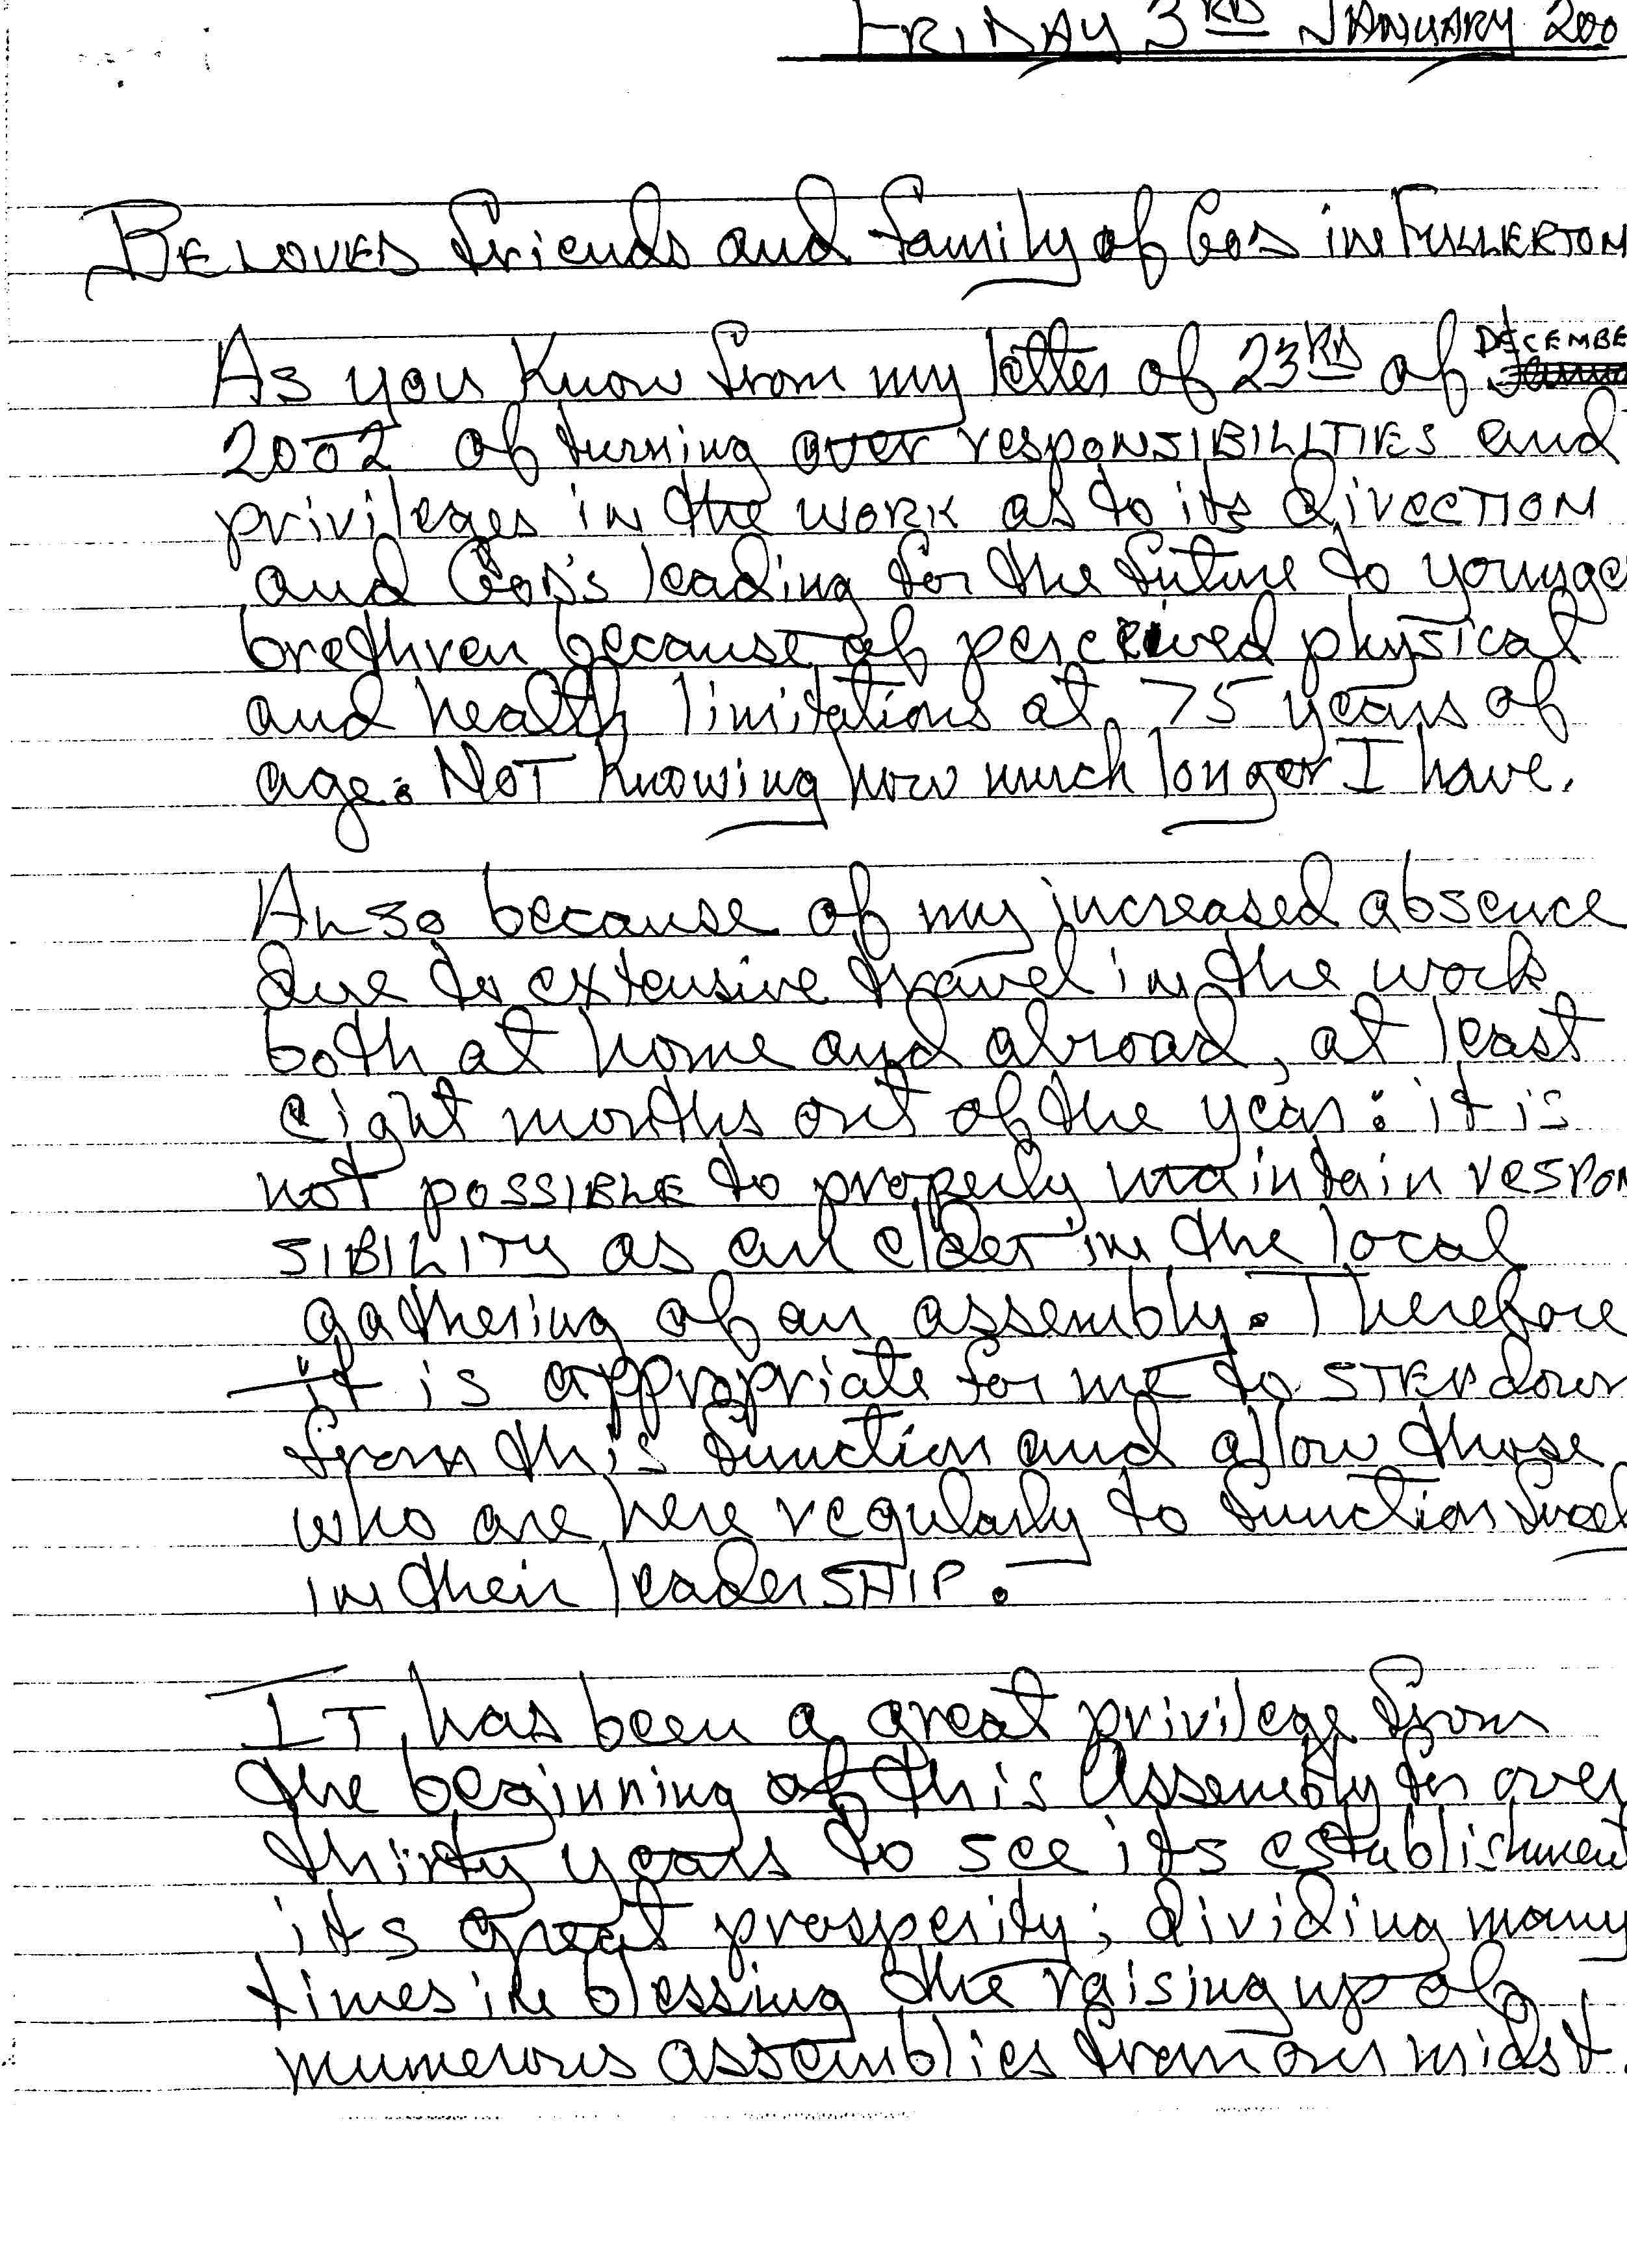 FRIDAY 3RD JANUARY 200
BELOVED friends and family of GOD in FULLERTON
As you know from my letter of 23RD of DECEMBE
2002 of turning over responSIBILITIES and
privileges in the WORK as to its DirecTION
and GOD's leading for the future to younge
brethren because of perceived physical
and health limitations at 75 years of
age. NOT knowing how much longer I have.
ALSO because of my increased absence
due to extensive travel in the work
both at home and abroad, at least
eight months out of the year: it is
not POSSIBLE to properly maintain RESPON
SIBILITY as an elder in the local
gathering of an assembly. Therefore
it is appropriate for me to STEP down
from this function and allow those
who are here regularly to function freel
in their leaderSHIP.
IT has been a great privilege from
the beginning of this Assembly for over
thirty years to see its establishment
its great prosperity; dividing many
times in blessing the raising up of
numerous assemblies from our midst.